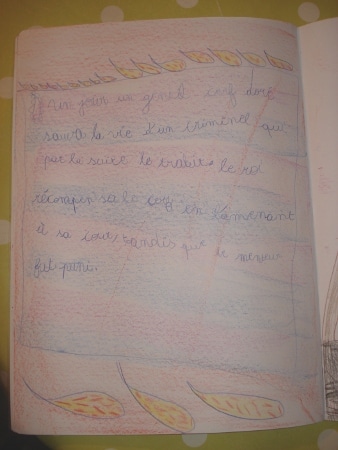 un jour un gentil cerf doré
sauva la vie d'un criminel qui
par la suite le trahit. le roi
récompensa le cerf en l'amenant
à sa cour, tandis que le
fut puni.